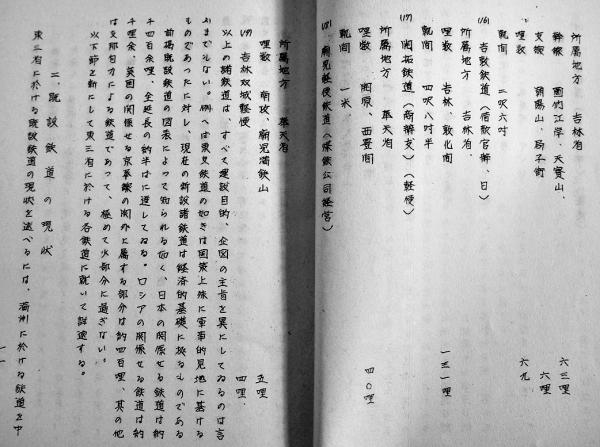 所属地方　吉林省
幹線　図們江岸、天宝山、
支線　朝陽山、局子街
哩数　六三哩
六哩
六九
軌間　二呎六吋
(16) 吉敦鉄道（借款官弁、日）
所属地方　吉林省、
哩数　吉林、敦化間　一三一哩
軌間　四呎八吋半
(17) 開拓鉄道（商弁支）（軽便）
所属地方　奉天省
哩数　開原、西豊間　四〇哩
軌間　一米
軽便鉄道（煤鉄公司経営）
所属地方　奉天省
哩数　南坟、廟児溝鉄山　五哩
(19) 吉林双城軽便　四哩、
以上の諸鉄道は、すべて建設目的、企図の主旨を異にしてゐるのは言
ふまでもない。例へば東支鉄道の如きは国策上殊に軍事的見地に基ける
ものであつたに対し、現在の新設諸鉄道は経済的基礎に拠るものである
前掲既設鉄道の図表によつて知られる如く、日本の関係せる鉄道は約
千四百余哩、全延長の約半ばに達してゐる。ロシアの関係せる鉄道は約
千哩余、英国の関係せる京奉線の関外に属する部分は約四百哩、其の他
は支那自力による鉄道であつて、極めて少部分に過ぎない。
以下節を新にして東三省に於ける各鉄道に就いて詳述する。
二、既設鉄道の現状
東三省に於ける既設鉄道の現状を述べるには、満洲に於ける鉄道を中
一一